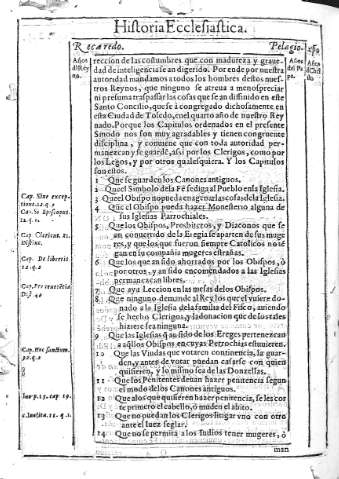 Historia Ecclesiastica.
Recaredo.
Pelagio.
Años del Reyno.
Años del Papa.
Años de Christo
reccion de las costumbres que con madureza y grauedad
de inteligencia se an digerido. Por ende por nuestra
autoridad mandamos a todos los hombres destos nuestros
Reynos, que ninguno se atreua a menospreciar
ni presuma traspassar las cosas que se an difinido en este
Santo Concilio, que se à congregado dichosamente en
esta Ciudad de Toledo, en el quarto año de nuestro Reynado.
Porque los Capitulos ordenados en el presente
Sinodo nos son muy agradables y tienen congruente
disciplina, y conuiene que con toda autoridad permanezcan
y se guardē, assi por los Clerigos, como por
los Legos, y por otros qualesquiera. Y los Capitulos
son estos.
1 Que se guarden los Canones antiguos.
2 Que el Simbolo de la Fe se diga al Pueblo en la Iglesia.
3 Que el Obispo no pueda enagenar las cosas de la Iglesia.
4 Que el Obispo pueda hazer Monesterio alguna de
sus Iglesias Parrochiales.
5 Que los Obispos, Presbiteros, y Diaconos que se
an conuertido de la Eregia se aparten de sus mugeres,
y que los que fueron siempre Catolicos no tēgan
en su compañia mugeres estrañas.
6 Que los que an sido ahorrados por los Obispos, ò
por otros, y an sido encomendados a las Iglesias
permanezcan libres.
7 Que aya Leccion en las mesas de los Obispos.
8 Que ninguno demande al Rey los que vuiere donado
a la Iglesia de la familia del Fisco, auiendose
hecho Clerigos, y la donacion que de los tales
hiziere sea ninguna.
9 Que las Iglesias que an sido de los Ereges pertenezcan
a aq̃llos Obispos en cuyas Parrochias estuuieren.
10 Que las Viudas que votaren continencia, la guarden,
y antes de votar puedan casarse con quien
quisieren, y lo mismo sea de las Donzellas.
11 Que los Penitentes deuan hazer penitencia segun
el modo de los Canones antiguos.
12 A los que quisieren hazer penitencia, se les corte
primero el cabello, ò muden el abito.
13 Que no puedan los Clerigos litigar vno con otro
ante el Iuez seglar.
14 Que no se permita a los Iudios tener mugeres, ò
man
Cap. Sine exceptione.
Cap. Si Episcopus.
12. q. 2.
Cap. Clericus. 81.
Distinc.
Cap. De libertis
12. q. 2